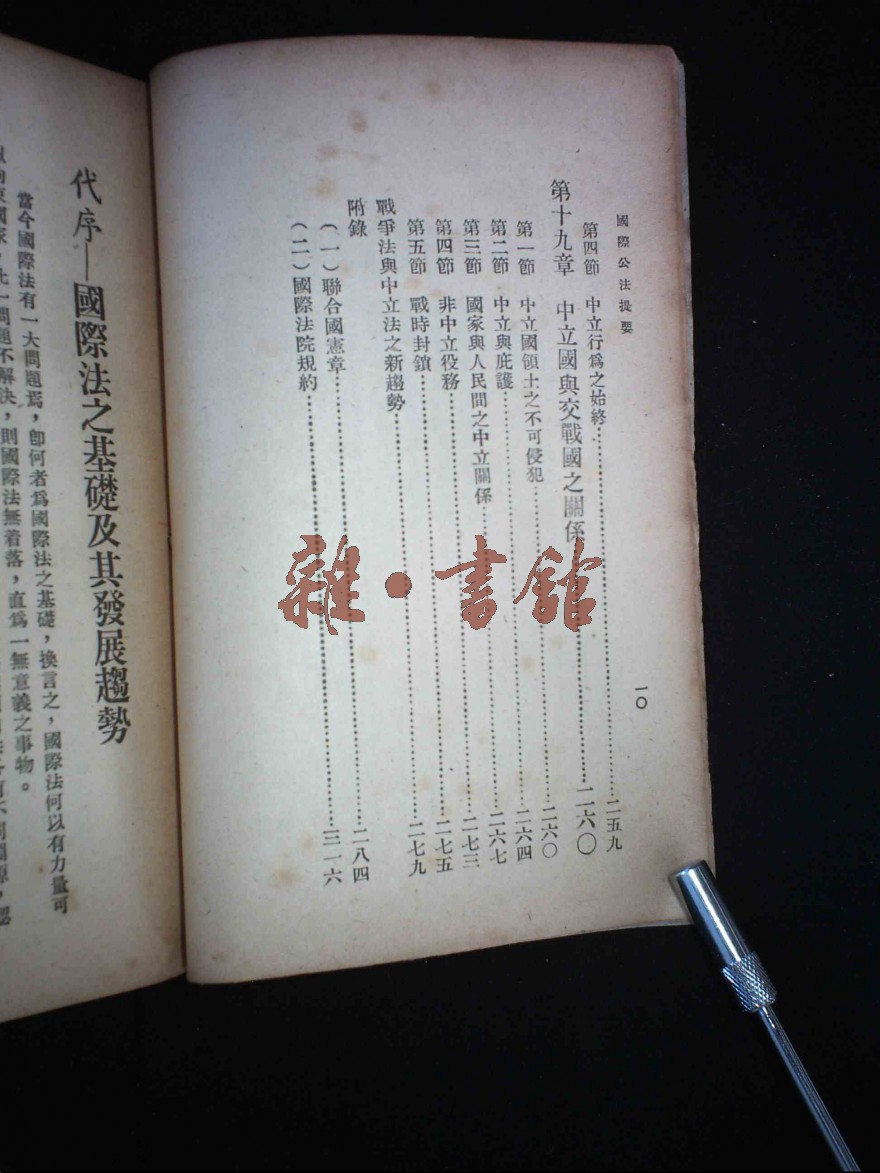 國際公法提要
一〇
第四節 中立行爲之始終……二五九
第十九章 中立國與交戰國之關係……二六〇
第一節 中立國領土之不可侵犯……二六〇
第二節 中立與庇護……二六四
第三節 國家與人民間之中立關係……二六七
第四節 非中立役務……二七三
第五節 戰時封鎖……二七五
戰爭法與中立法之新趨勢……二七九
附錄
(一)聯合國憲章……二八四
(二)國際法院規約……三一六
雜·書館
代序—國際法之基礎及其發展趨勢
當今國際法有一大問題焉,卽何者爲國際法之基礎,換言之,國際法何以有力量可
拘束國家,此一問題不解決,則國際法無着落,直爲一無意義之事物。